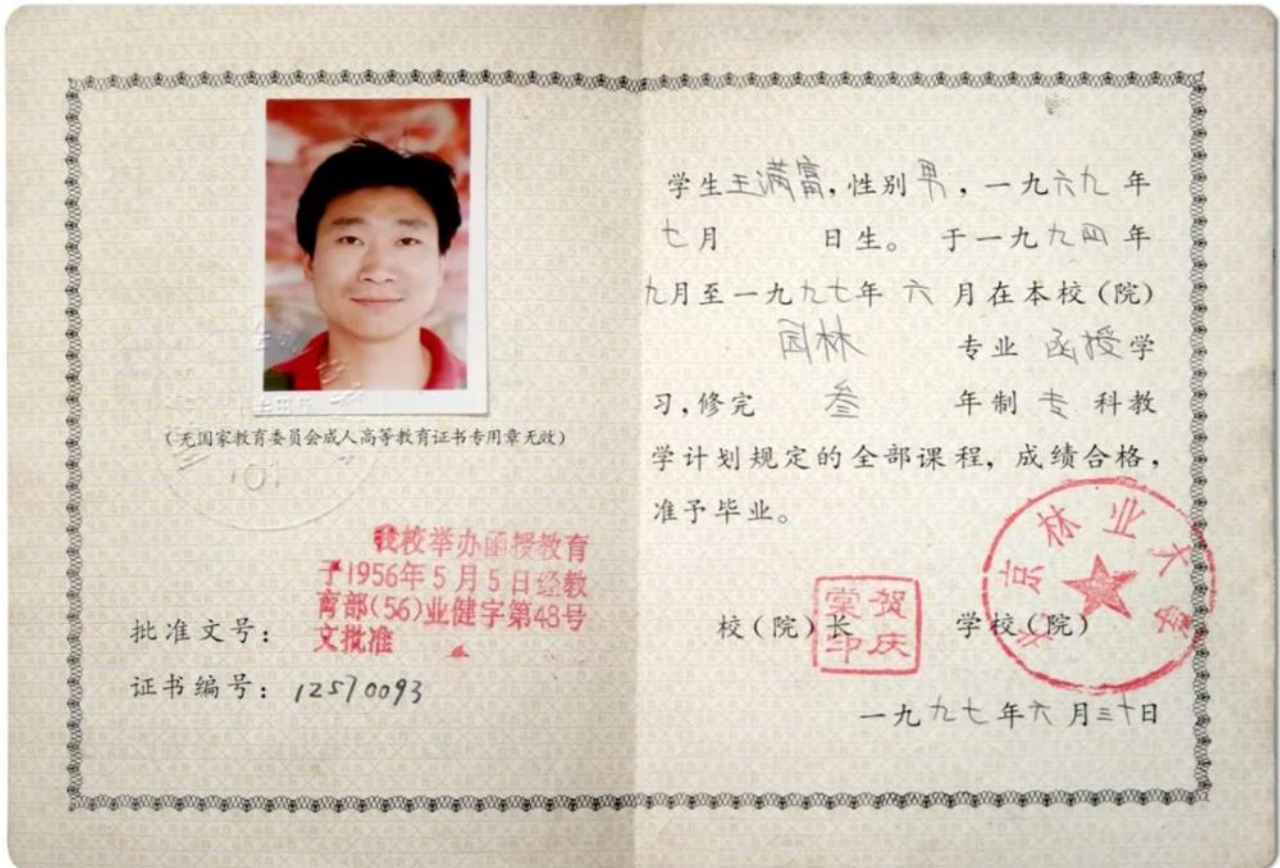 (无国家教育委员会成人高等教育证书专用章无效)
101
我校举办函授教育
于1956年5月5日经教
育部(56)业健字第48号
文批准
批准文号:
证书编号: 12570093
学生王满富,性别男,一九六九年
七月 日生。 于一九九四年
九月至一九九七年 六 月在本校(院)
园林 专业 函授学
习,修完 叁 年制 专 科教
学计划规定的全部课程, 成绩合格,
准予毕业。
校(院)长 学校(院)
贺庆棠印
北京林业大学
一九九七年六月三十日